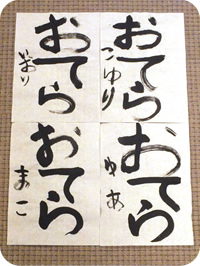 おてら
こゆり
おてら
おてら
ゆあ
おてら
まこ